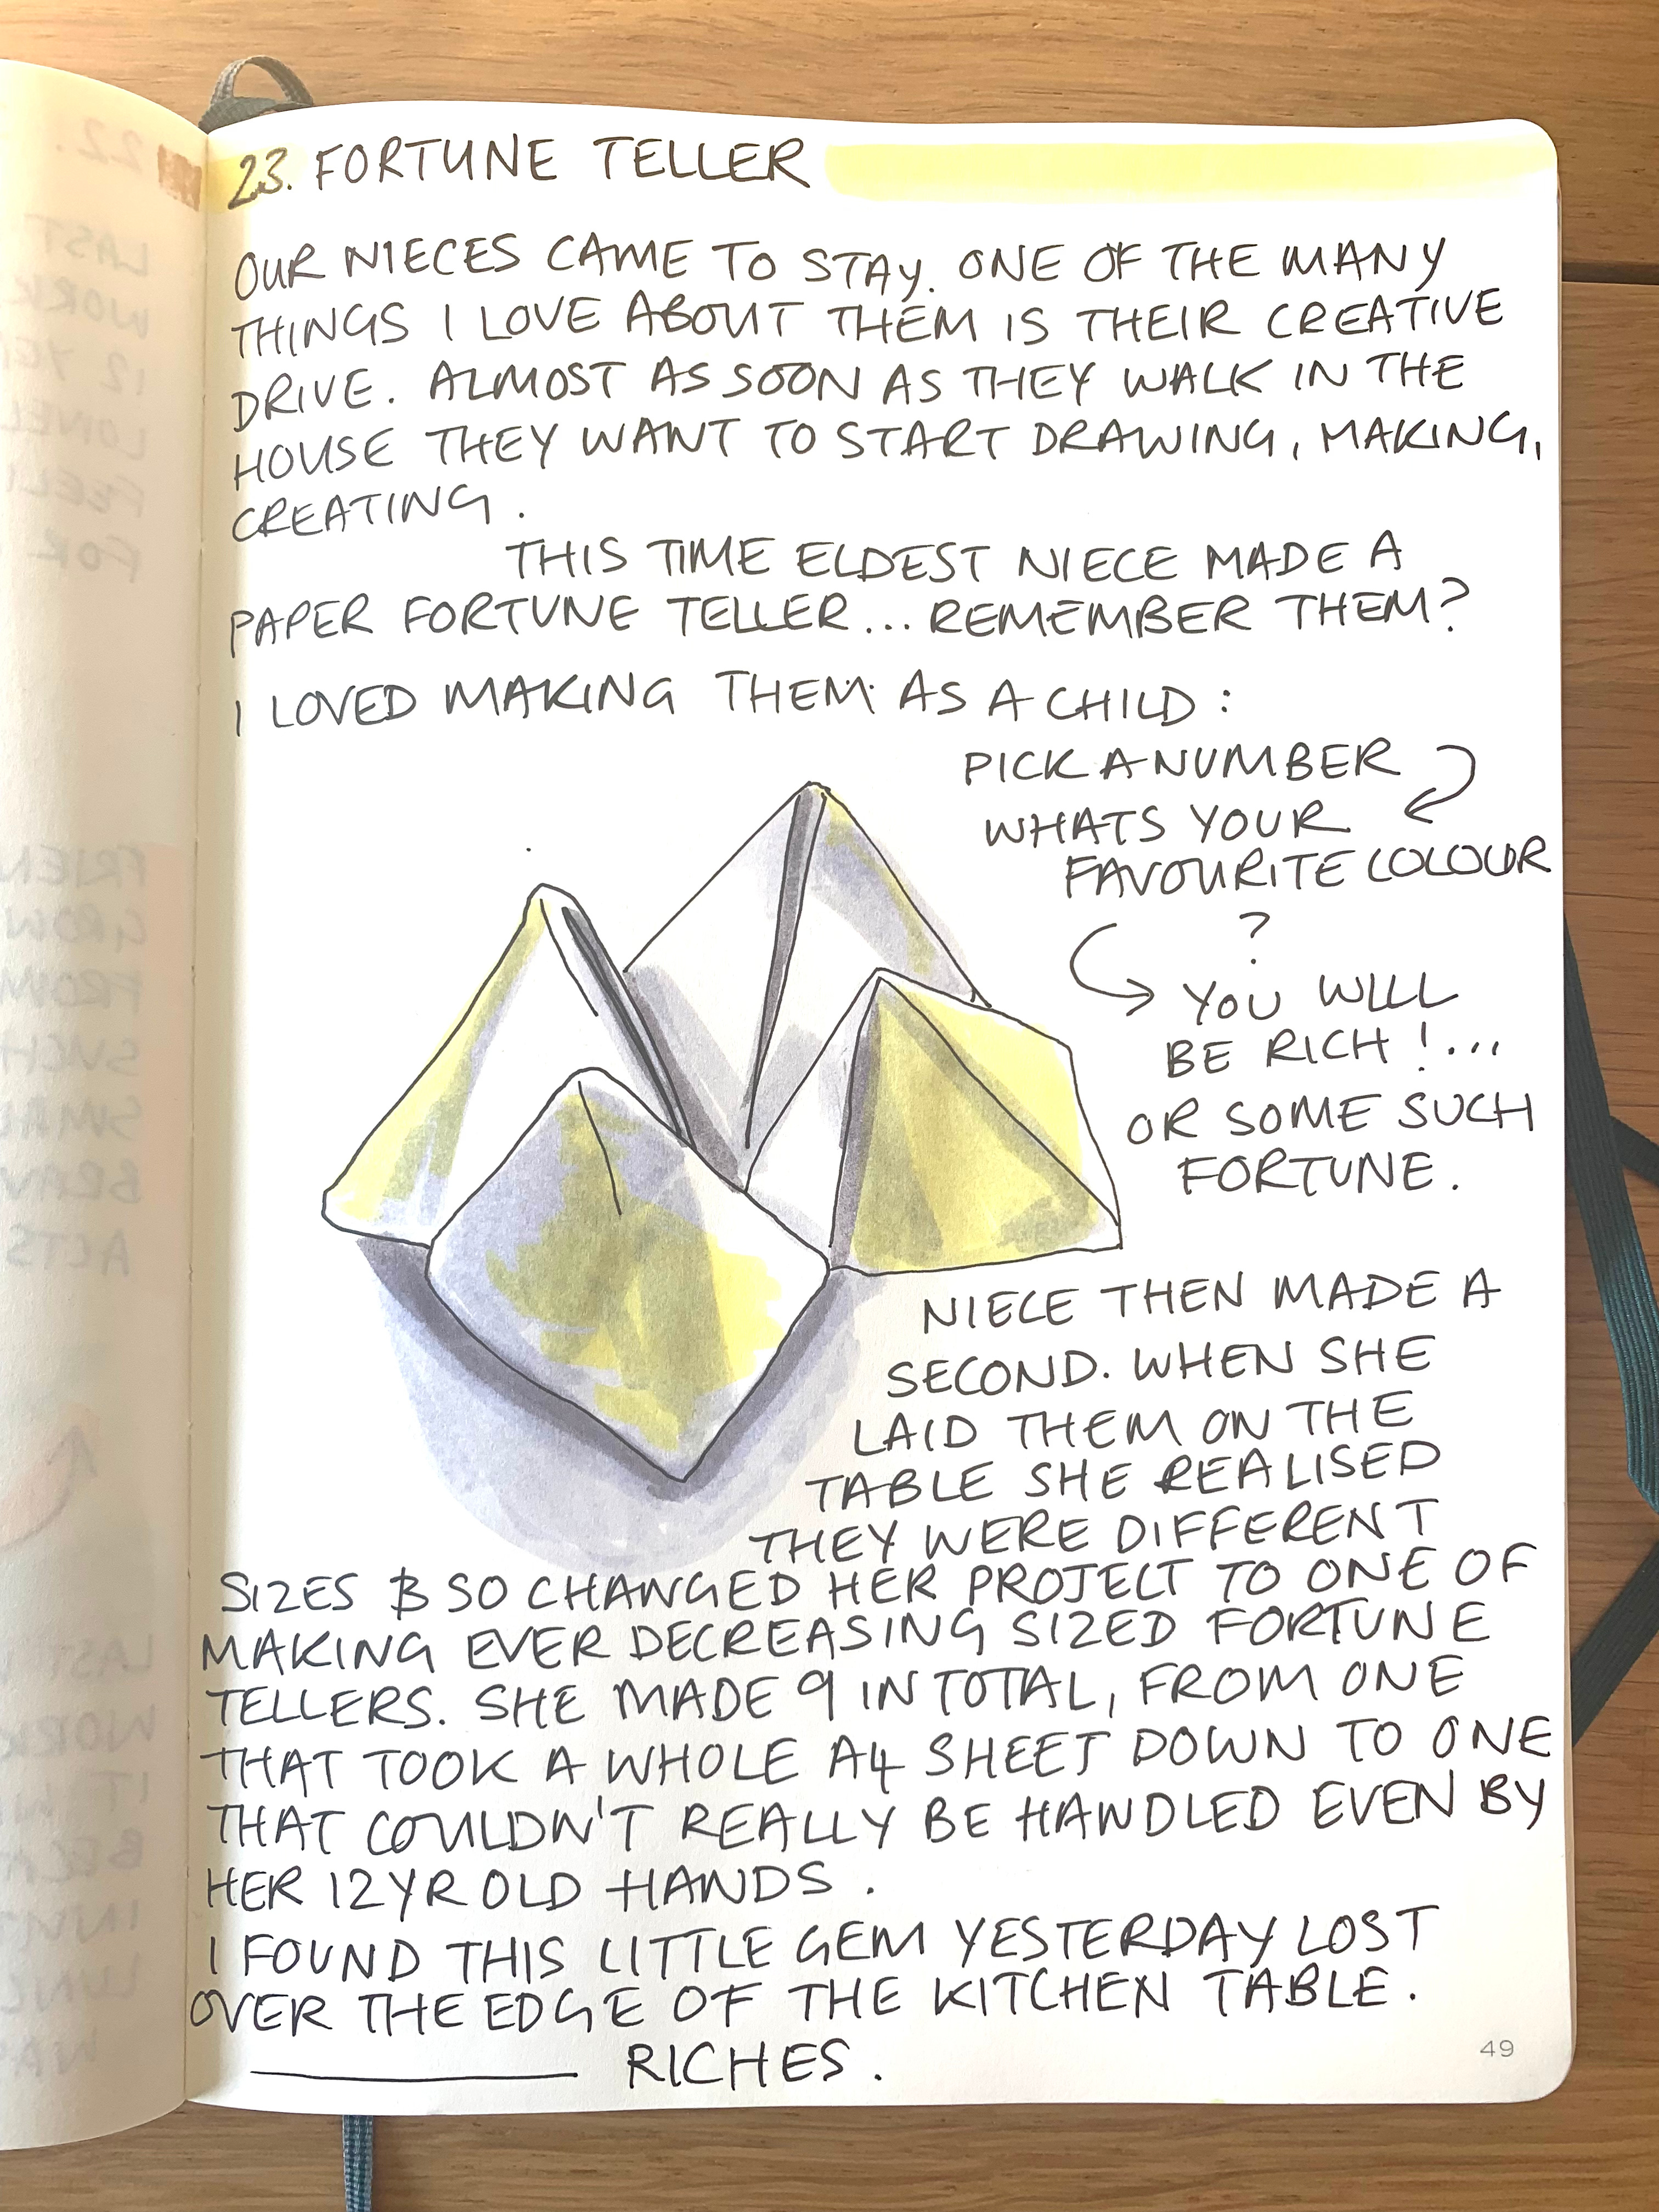 23. FORTUNE TELLER
OUR NIECES CAME TO STAY. ONE OF THE MANY
THINGS I LOVE ABOUT THEM IS THEIR CREATIVE
DRIVE. ALMOST AS SOON AS THEY WALK IN THE
HOUSE THEY WANT TO START DRAWING, MAKING,
CREATING.
THIS TIME ELDEST NIECE MADE A
PAPER FORTUNE TELLER... REMEMBER THEM?
I LOVED MAKING THEM AS A CHILD:
PICK A NUMBER
WHATS YOUR
FAVOURITE COLOUR
?
YOU WILL
BE RICH!...
OR SOME SUCH
FORTUNE.
NIECE THEN MADE A
SECOND. WHEN SHE
LAID THEM ON THE
TABLE SHE REALISED
THEY WERE DIFFERENT
SIZES & SO CHANGED HER PROJECT TO ONE OF
MAKING EVER DECREASING SIZED FORTUNE
TELLERS. SHE MADE 9 IN TOTAL, FROM ONE
THAT TOOK A WHOLE A4 SHEET DOWN TO ONE
THAT COULDN'T REALLY BE HANDLED EVEN BY
HER 12 YR OLD HANDS.
I FOUND THIS LITTLE GEM YESTERDAY LOST
OVER THE EDGE OF THE KITCHEN TABLE.
RICHES.
49